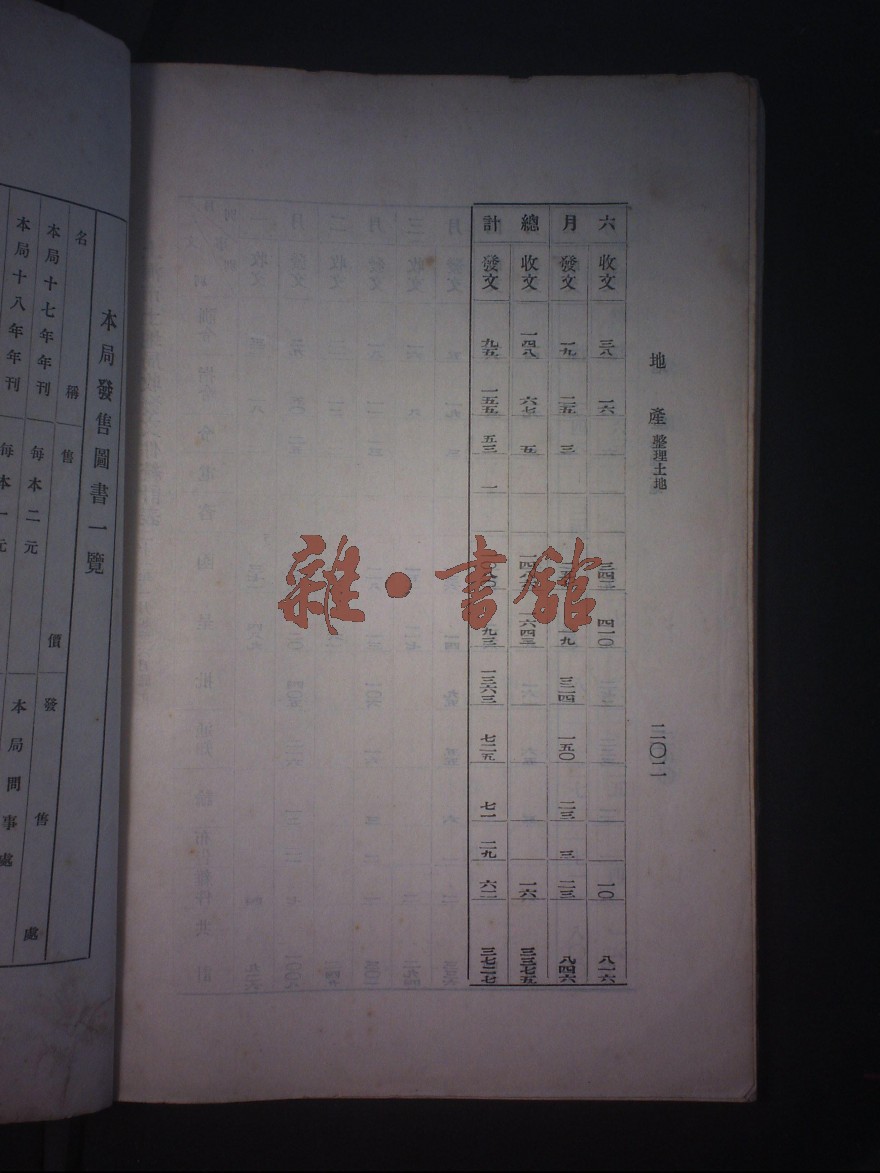 地產 整理土地 二〇二
六 收文 三八 一六 三四二 四一〇 一〇 八一六
月 發文 一九 二五 三 一九 三二四 一五〇 二三 三 二三 八四六
總 收文 一四八 六七 五 一六四三 一六 三三七五
計 發文 九五 一五五 五三 一 一三六三 七二五 七一 二九 六二 三七二七
雜·書館
本局發售圖書一覽
名稱 售價 發售處
本局十七年年刊 每本二元 本局問事處
本局十八年年刊 每本一元